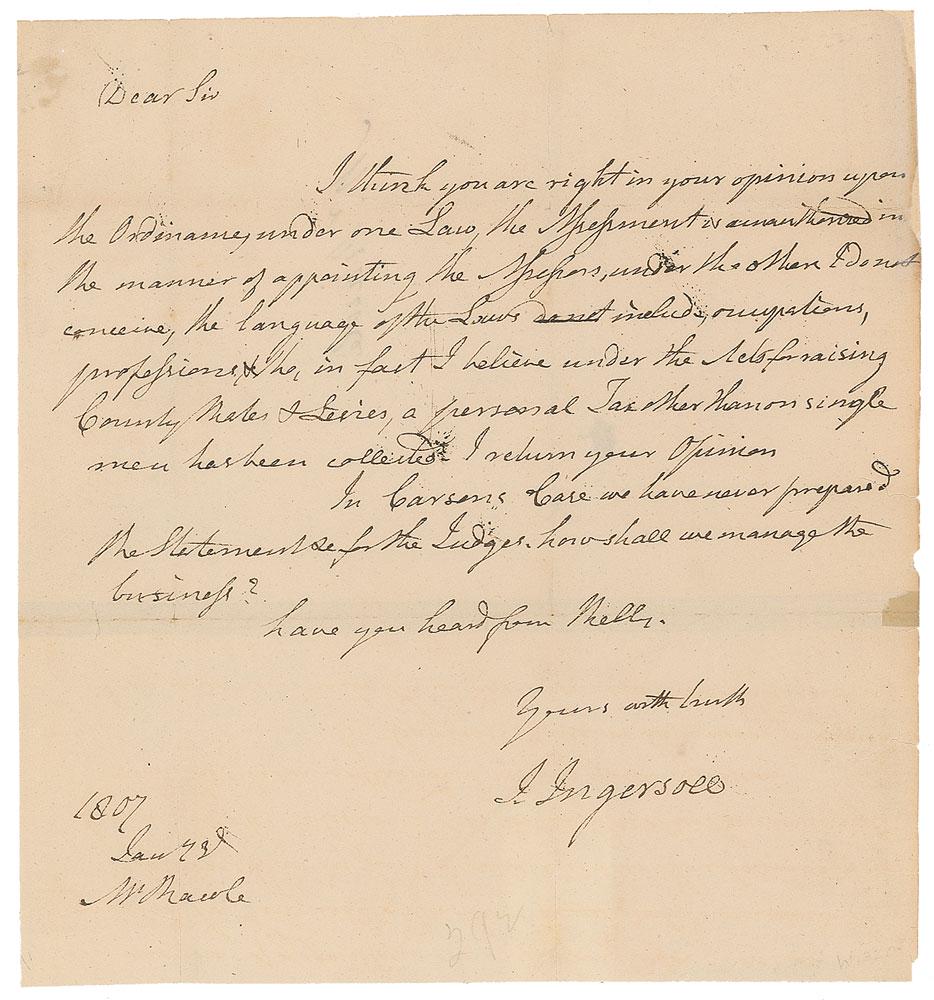 Dear Sir
I think you are right in your opinion upon
the Ordinance, under one Law, the Assessment is unauthorized in
the manner of appointing the Assessors, under the other I do not
conceive, the language of the Laws do not include, occupations,
professions, &, in fact I believe under the Acts for raising
County Rates & Levies, a personal Tax other than on single
men has been collected. I return your Opinion
In Carsons Case we have never prepared
the Statement &c for the Judges. how shall we manage the
business?
have you heard from Kelly.
Yours with truth
J Ingersoll
1807
Jany 3d
Mr Rawle